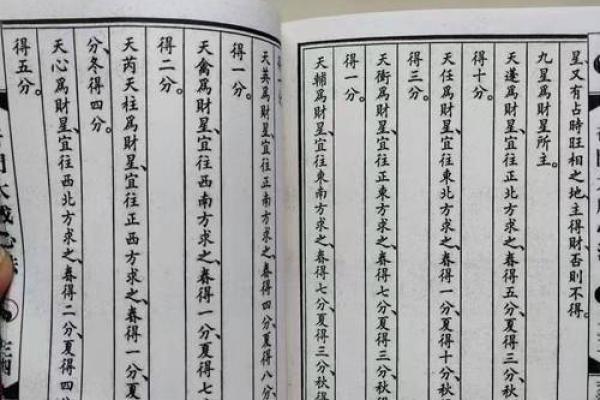 星、又有占時旺相之地、主得財否則不得。
九星爲財星所主。
天蓬爲財星、宜往正北方求之、春得五分、夏得三分、秋
得十分。
天任爲財星、宜往東北方求之、春得一分、夏得十分、秋
得三分。
天衝爲財星、宜往正東方求之、春得七分、夏得三分、秋
得一分。
天輔爲財星、宜往東南方求之、春得七分、夏得三分、秋得
天英爲財星、宜往正南方求之、春得四分、夏得八分、
得一分。
天禽爲財星、宜往西南方求之、春得一分、夏得七
得二分。
天芮天柱爲財星、宜往正西方求之、春得一分、夏
分、冬得四分。
天心爲財星、宜往西北方求之、春得二分、夏得四
得五分。